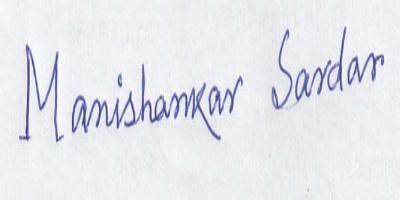 Manishankar Sardar